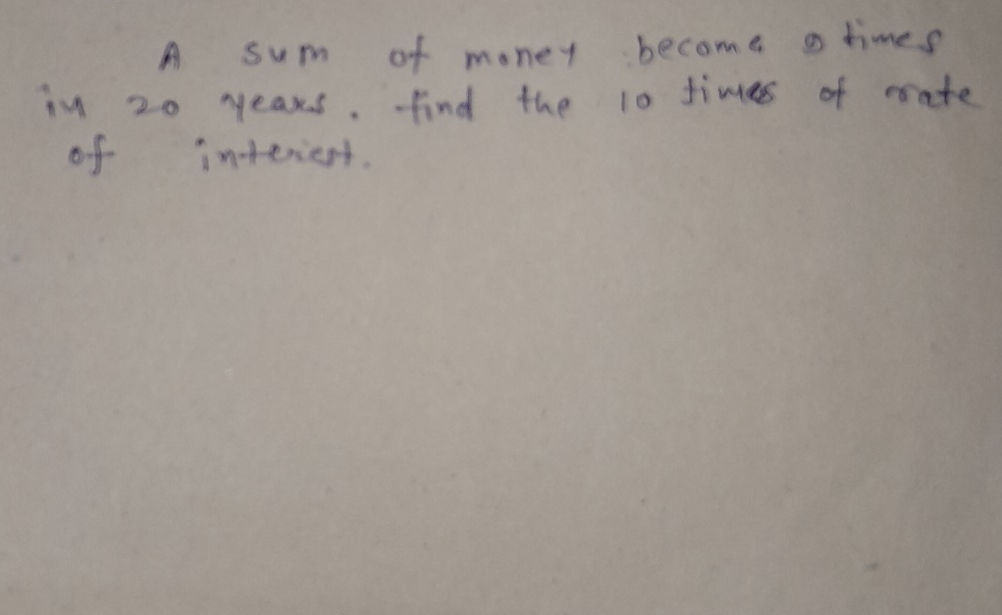 A sum of money become times
in 20 years. find the 10 times of rate
of interest.